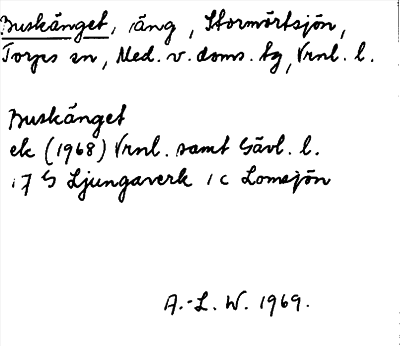 Buskänget, äng, Stormörtsjön,
Torps sn, Med. v. doms. tg, Vrnl. l.
Buskänget
ek (1968) Vrnl. samt Gävl. l.
17 G Ljungaverk 1 c Lomsjön
A.-L. W. 1969.